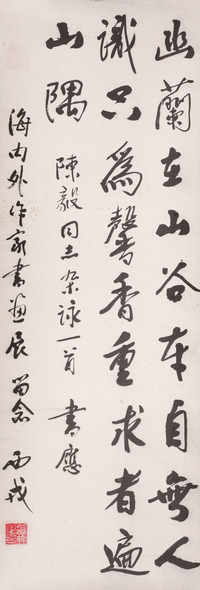 幽蘭在山谷本自無人
識只爲馨香重求者遍
山隅 陳毅同志杂詠一首 書應
海内外作家書畫展 留念 丙戌